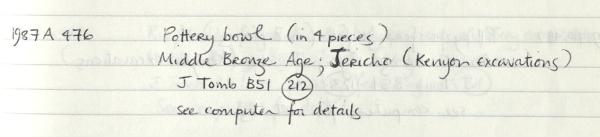 1987A 476 Pottery bowl (in 4 pieces)
Middle Bronze Age; Jericho (Kenyon excavations)
J Tomb B51 (212)
see computer for details